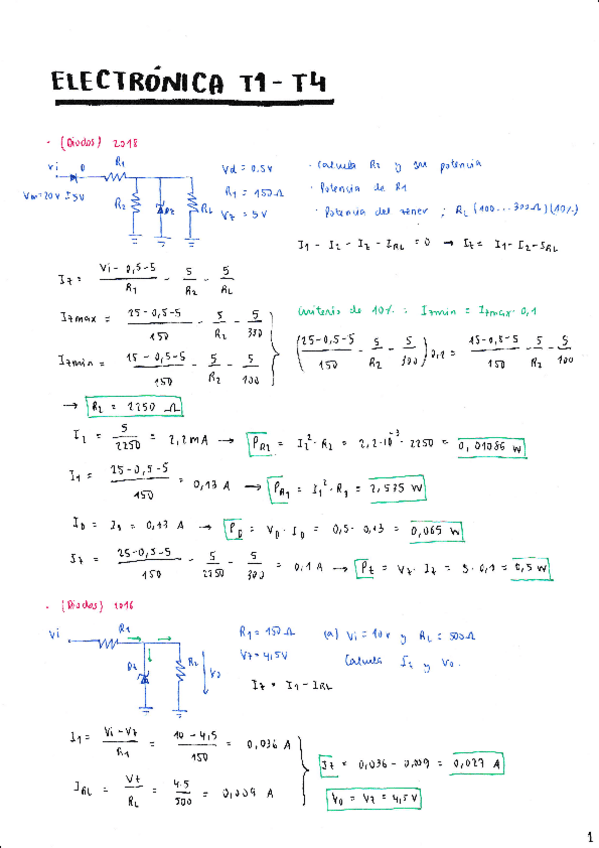 ELECTRÓNICA T1 - T4
· (Diodos) 2018
Vi D R1
Vm=20V±5V
R2 DZ RL
Vd = 0.5V
R1 = 150Ω
VZ = 5V
· Calcula R2 y su potencia
· Potencia de R1
· Potencia del zener ; RL (100...300Ω)(10%)
I1 - I2 - IZ - IRL = 0 → IZ = I1 - I2 - IRL
IZ = (Vi - 0,5 - 5)/R1 - 5/R2 - 5/RL
IZmax = (25 - 0,5 - 5)/150 - 5/R2 - 5/300
IZmin = (15 - 0,5 - 5)/150 - 5/R2 - 5/100
Criterio de 10% : IZmin = IZmax · 0,1
((25 - 0,5 - 5)/150 - 5/R2 - 5/300) 0,1 = (15 - 0,5 - 5)/150 - 5/R2 - 5/100
→ R2 = 2250 Ω
I2 = 5/2250 = 2,2mA → PR2 = I2² · R2 = 2,2·10⁻³ · 2250 = 0,01086 W
I1 = (25 - 0,5 - 5)/150 = 0,13 A → PR1 = I1² · R1 = 2,535 W
ID = I1 = 0,13 A → PD = VD · ID = 0,5 · 0,13 = 0,065 W
IZ = (25 - 0,5 - 5)/150 - 5/2250 - 5/300 = 0,1 A → PZ = VZ · IZ = 5 · 0,1 = 0,5 W
· (Diodos) 2016
Vi R1
DZ R2 V0
R1 = 150Ω
VZ = 4,5V
(a) Vi = 10V y RL = 500Ω
Calcula IZ y V0.
IZ = I1 - IRL
I1 = (Vi - VZ)/R1 = (10 - 4,5)/150 = 0,036 A
IRL = VZ/RL = 4.5/500 = 0,009 A
IZ = 0,036 - 0,009 = 0,027 A
V0 = VZ = 4,5V
1